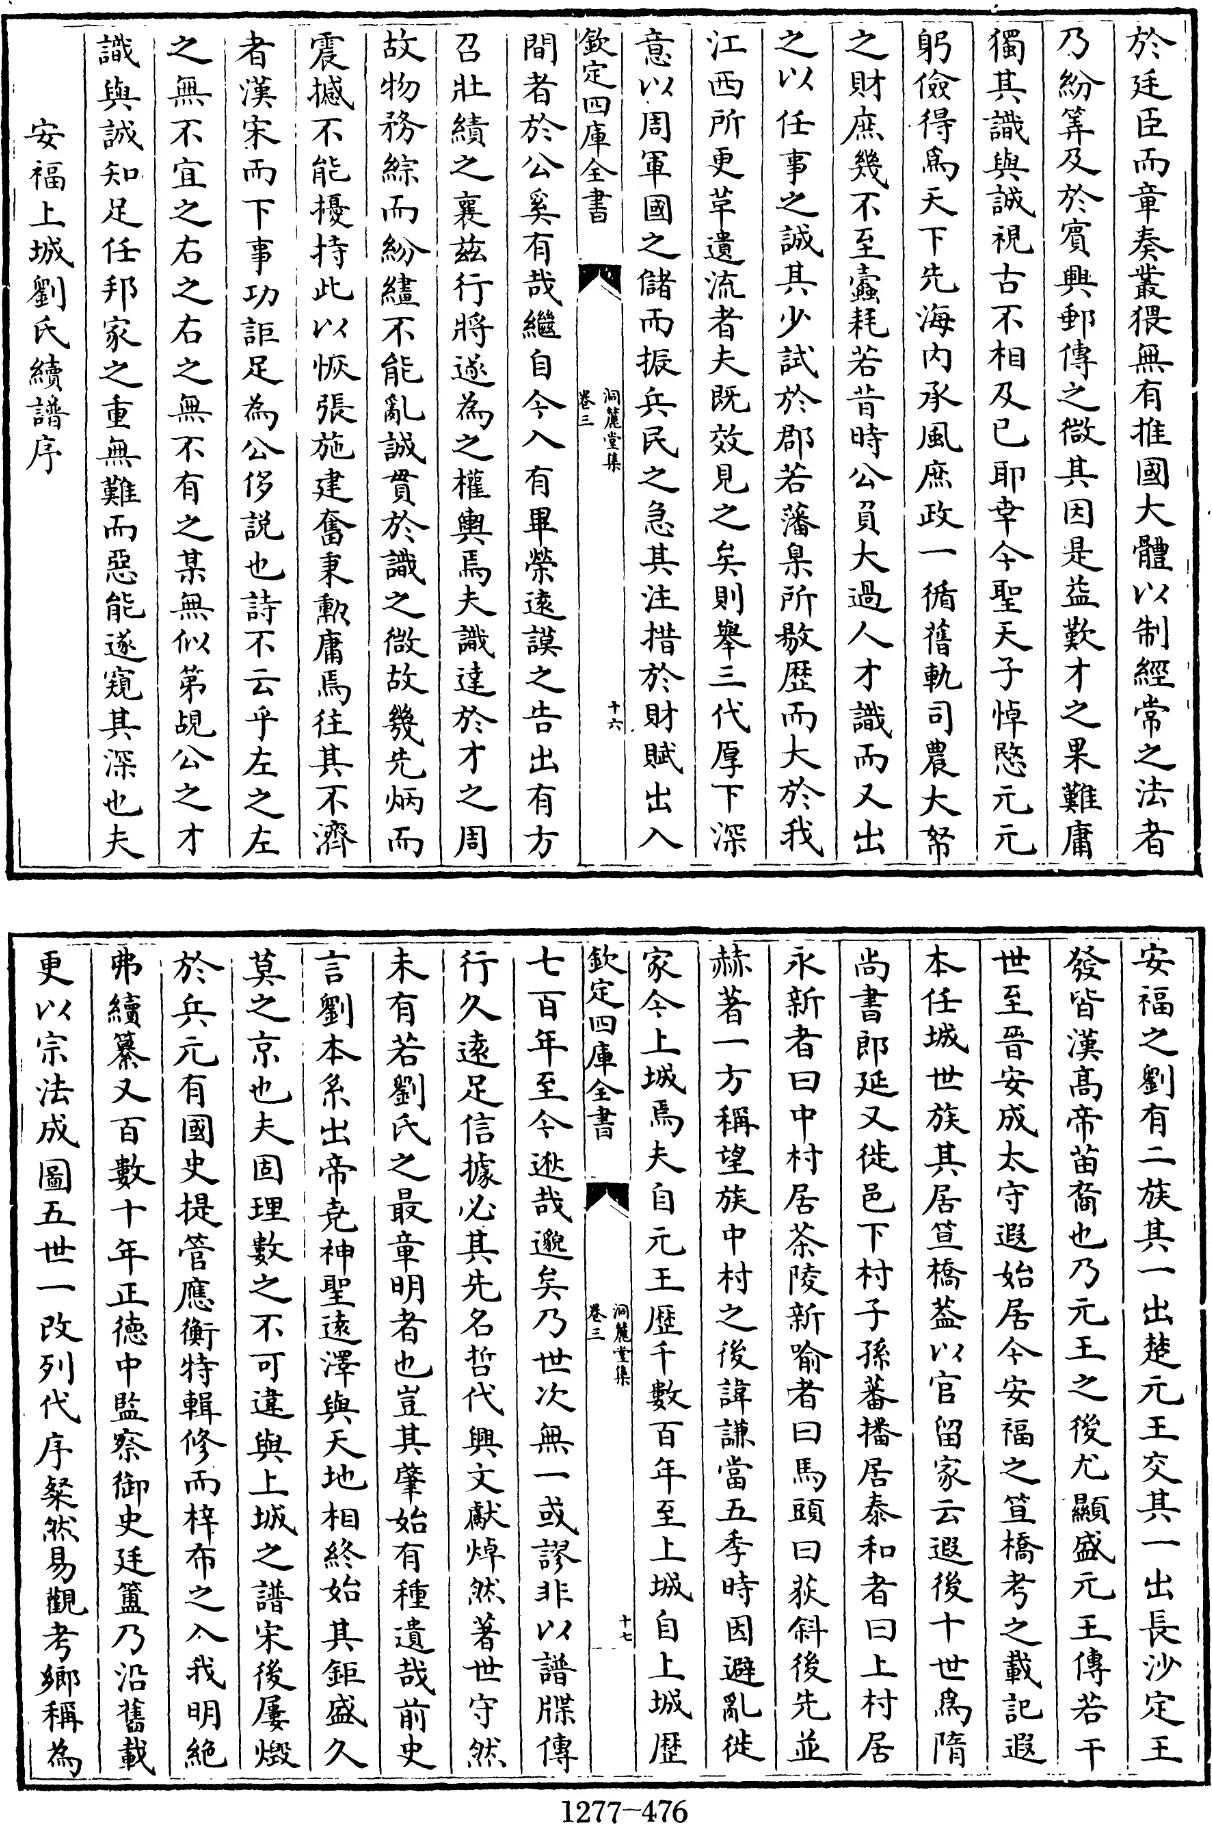 於廷臣而章奏叢猥無有推國大體以制經常之法者
乃紛筭及於賓興郵傳之微其因是益歎才之果難庸
獨其識與誠視古不相及已耶幸今聖天子悼愍元元
躬儉得為天下先海内承風庶政一循舊軌司農大帑
之財庶幾不至蠧耗若昔時公負大過人才識而又出
之以任事之誠其少試於郡若藩臬所敭歴而大於我
江西所更草遺流者夫既效見之矣則舉三代厚下深
意以周軍國之儲而振兵民之急其注措於財賦出入
欽定四庫全書
洞麓堂集
卷三
十六
間者於公奚有哉繼自今入有畢榮遠謨之告出有方
召壯績之襄兹行將遂為之權輿焉夫識達於才之周
故物務綜而紛纑不能亂誠貫於識之微故幾先炳而
震撼不能擾持此以恢張施建奮秉勲庸焉往其不濟
者漢宋而下事功詎足為公侈説也詩不云乎左之左
之無不宜之右之右之無不有之某無似第覘公之才
識與誠知足任邦家之重無難而惡能遂窺其深也夫
安福上城劉氏續譜序
安福之劉有二族其一出楚元王交其一出長沙定王
發皆漢髙帝苗裔也乃元王之後尤顯盛元王傳若干
世至晉安成太守遐始居今安福之笪橋考之載記遐
本任城世族其居笪橋葢以官留家云遐後十世為隋
尚書郎延又徙邑下村子孫蕃播居泰和者曰上村居
永新者曰中村居茶陵新喻者曰馬頭曰荻斜後先並
赫著一方稱望族中村之後諱謙當五季時因避亂徙
家今上城焉夫自元王歴千數百年至上城自上城歴
欽定四庫全書
洞麓堂集
卷三
十七
七百年至今逖哉邈矣乃世次無一或謬非以譜牒傳
行久遠足信據必其先名哲代興文獻焯然著世守然
未有若劉氏之最章明者也豈其肇始有種遺哉前史
言劉本系出帝堯神聖遠澤與天地相終始其鉅盛久
莫之京也夫固理數之不可違與上城之譜宋後屢燬
於兵元有國史提管應衡特輯修而梓布之入我明絶
弗續纂又百數十年正德中監察御史廷簠乃沿舊載
更以宗法成圖五世一改列代序粲然易觀考鄉稱為
1277-476